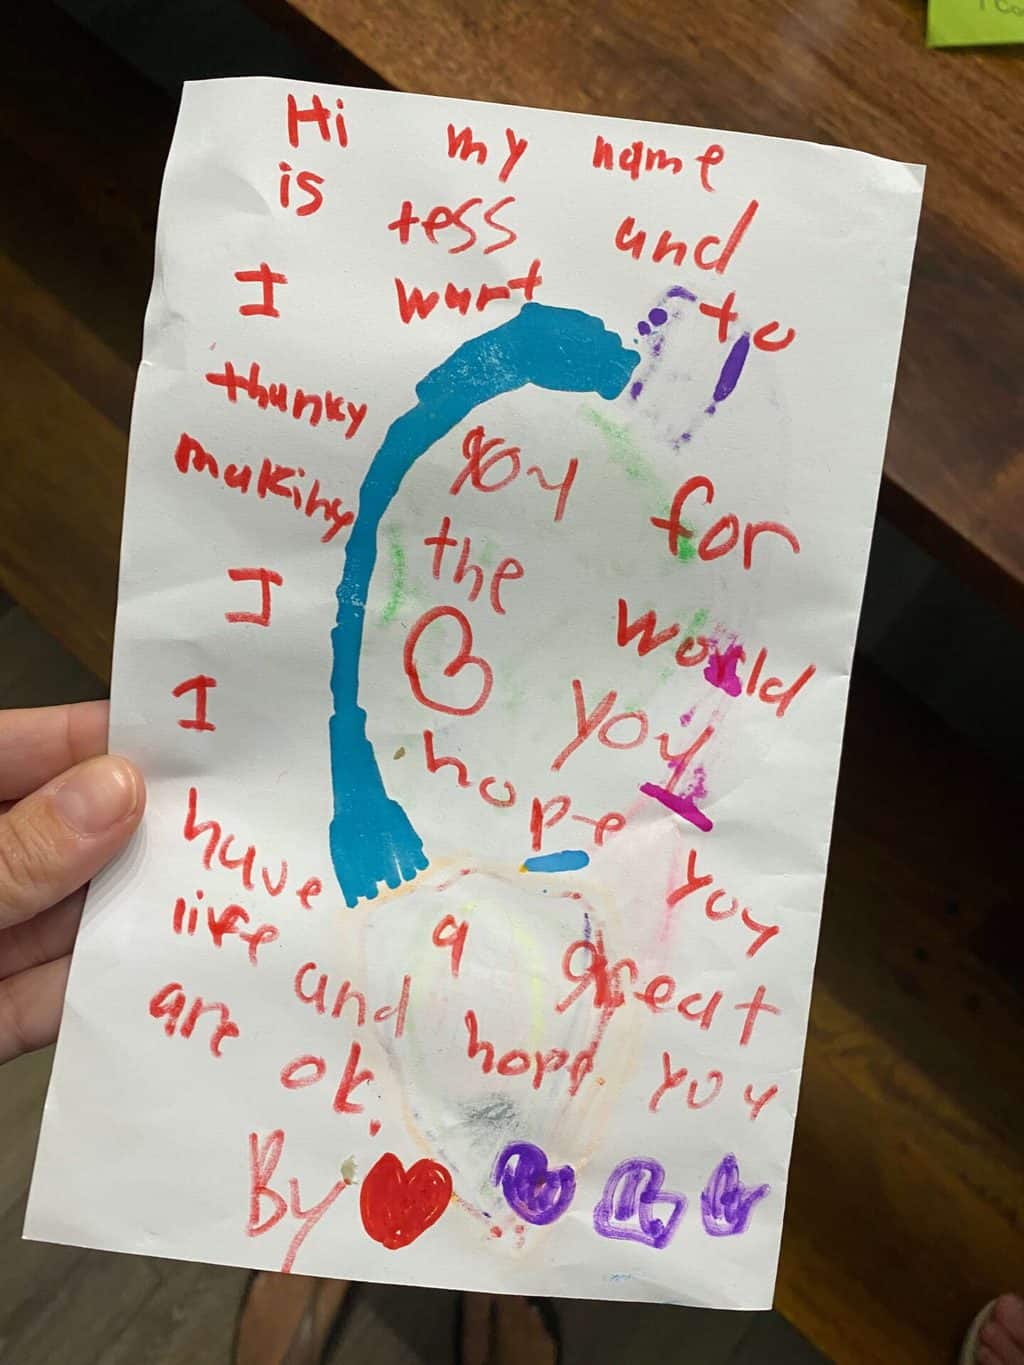 Hi my name
is tess and
I want to
thanky you for
making the world
I you
I hope you
have a great
life and hope you
are ok.
By